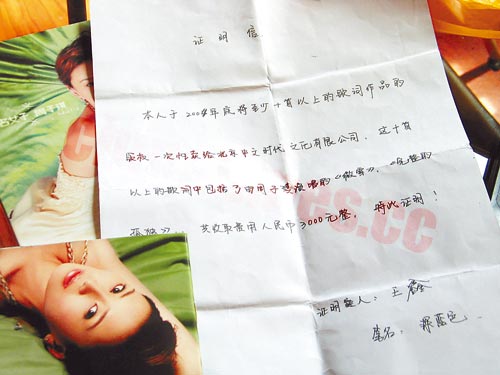 证明信
本人于2004年底将至少十首以上的歌词作品的
版权一次性卖给北京中文时代文化有限公司。这十首
以上的歌词中包括了由 演唱的《 》,《完整的
孤独》。 共收取费用人民币3000元整, 特此证明!
证明人: 王鑫
笔名: 蓝色